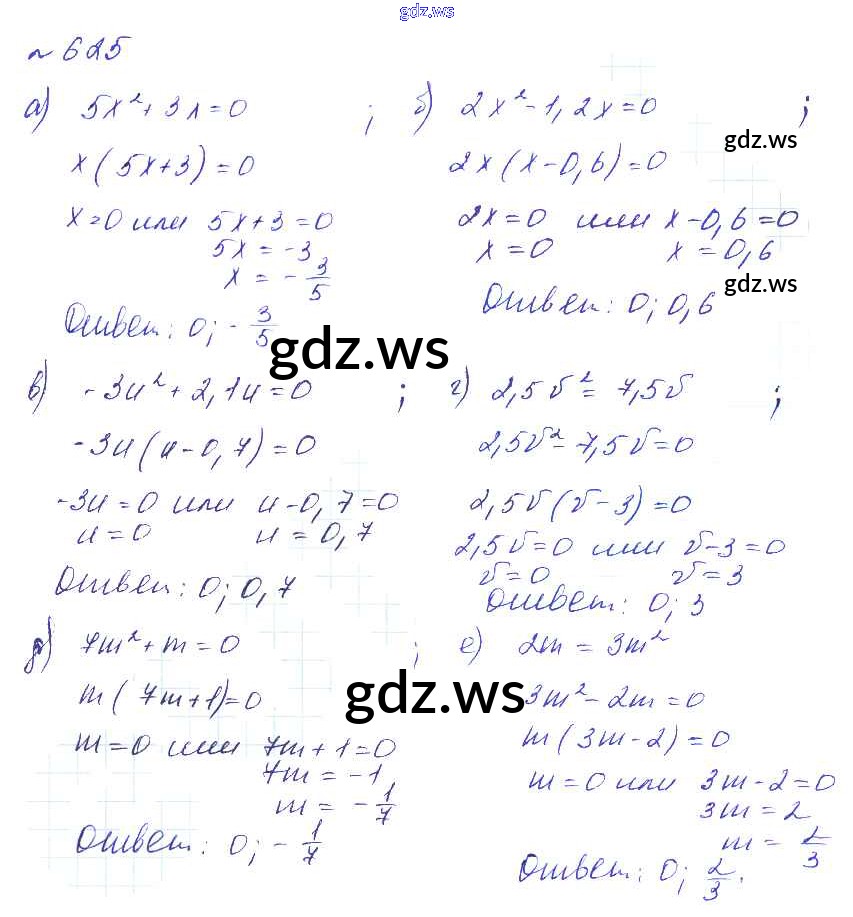 gdz.ws
№ 625
а) 5x² + 3x = 0 ;
x(5x+3) = 0
x=0 или 5x+3=0
5x = -3
x = -3/5
Ответ: 0; -3/5
б) 2x² - 1,2x = 0 ;
gdz.ws
2x(x-0,6)=0
2x=0 или x-0,6=0
x=0 x=0,6
gdz.ws
Ответ: 0; 0,6
gdz.ws
в) -3u² + 2,1u = 0 ;
-3u(u-0,7)=0
-3u=0 или u-0,7=0
u=0 u=0,7
Ответ: 0; 0,7
г) 2,5v² = 7,5v ;
2,5v² - 7,5v = 0
2,5v(v-3)=0
2,5v=0 или v-3=0
v=0 v=3
Ответ: 0; 3
д) 7m² + m = 0 ;
m(7m+1)=0
m=0 или 7m+1=0
7m = -1
m = -1/7
Ответ: 0; -1/7
gdz.ws
е) 2m = 3m²
3m² - 2m = 0
m(3m-2)=0
m=0 или 3m-2=0
3m=2
m = 2/3
Ответ: 0; 2/3.